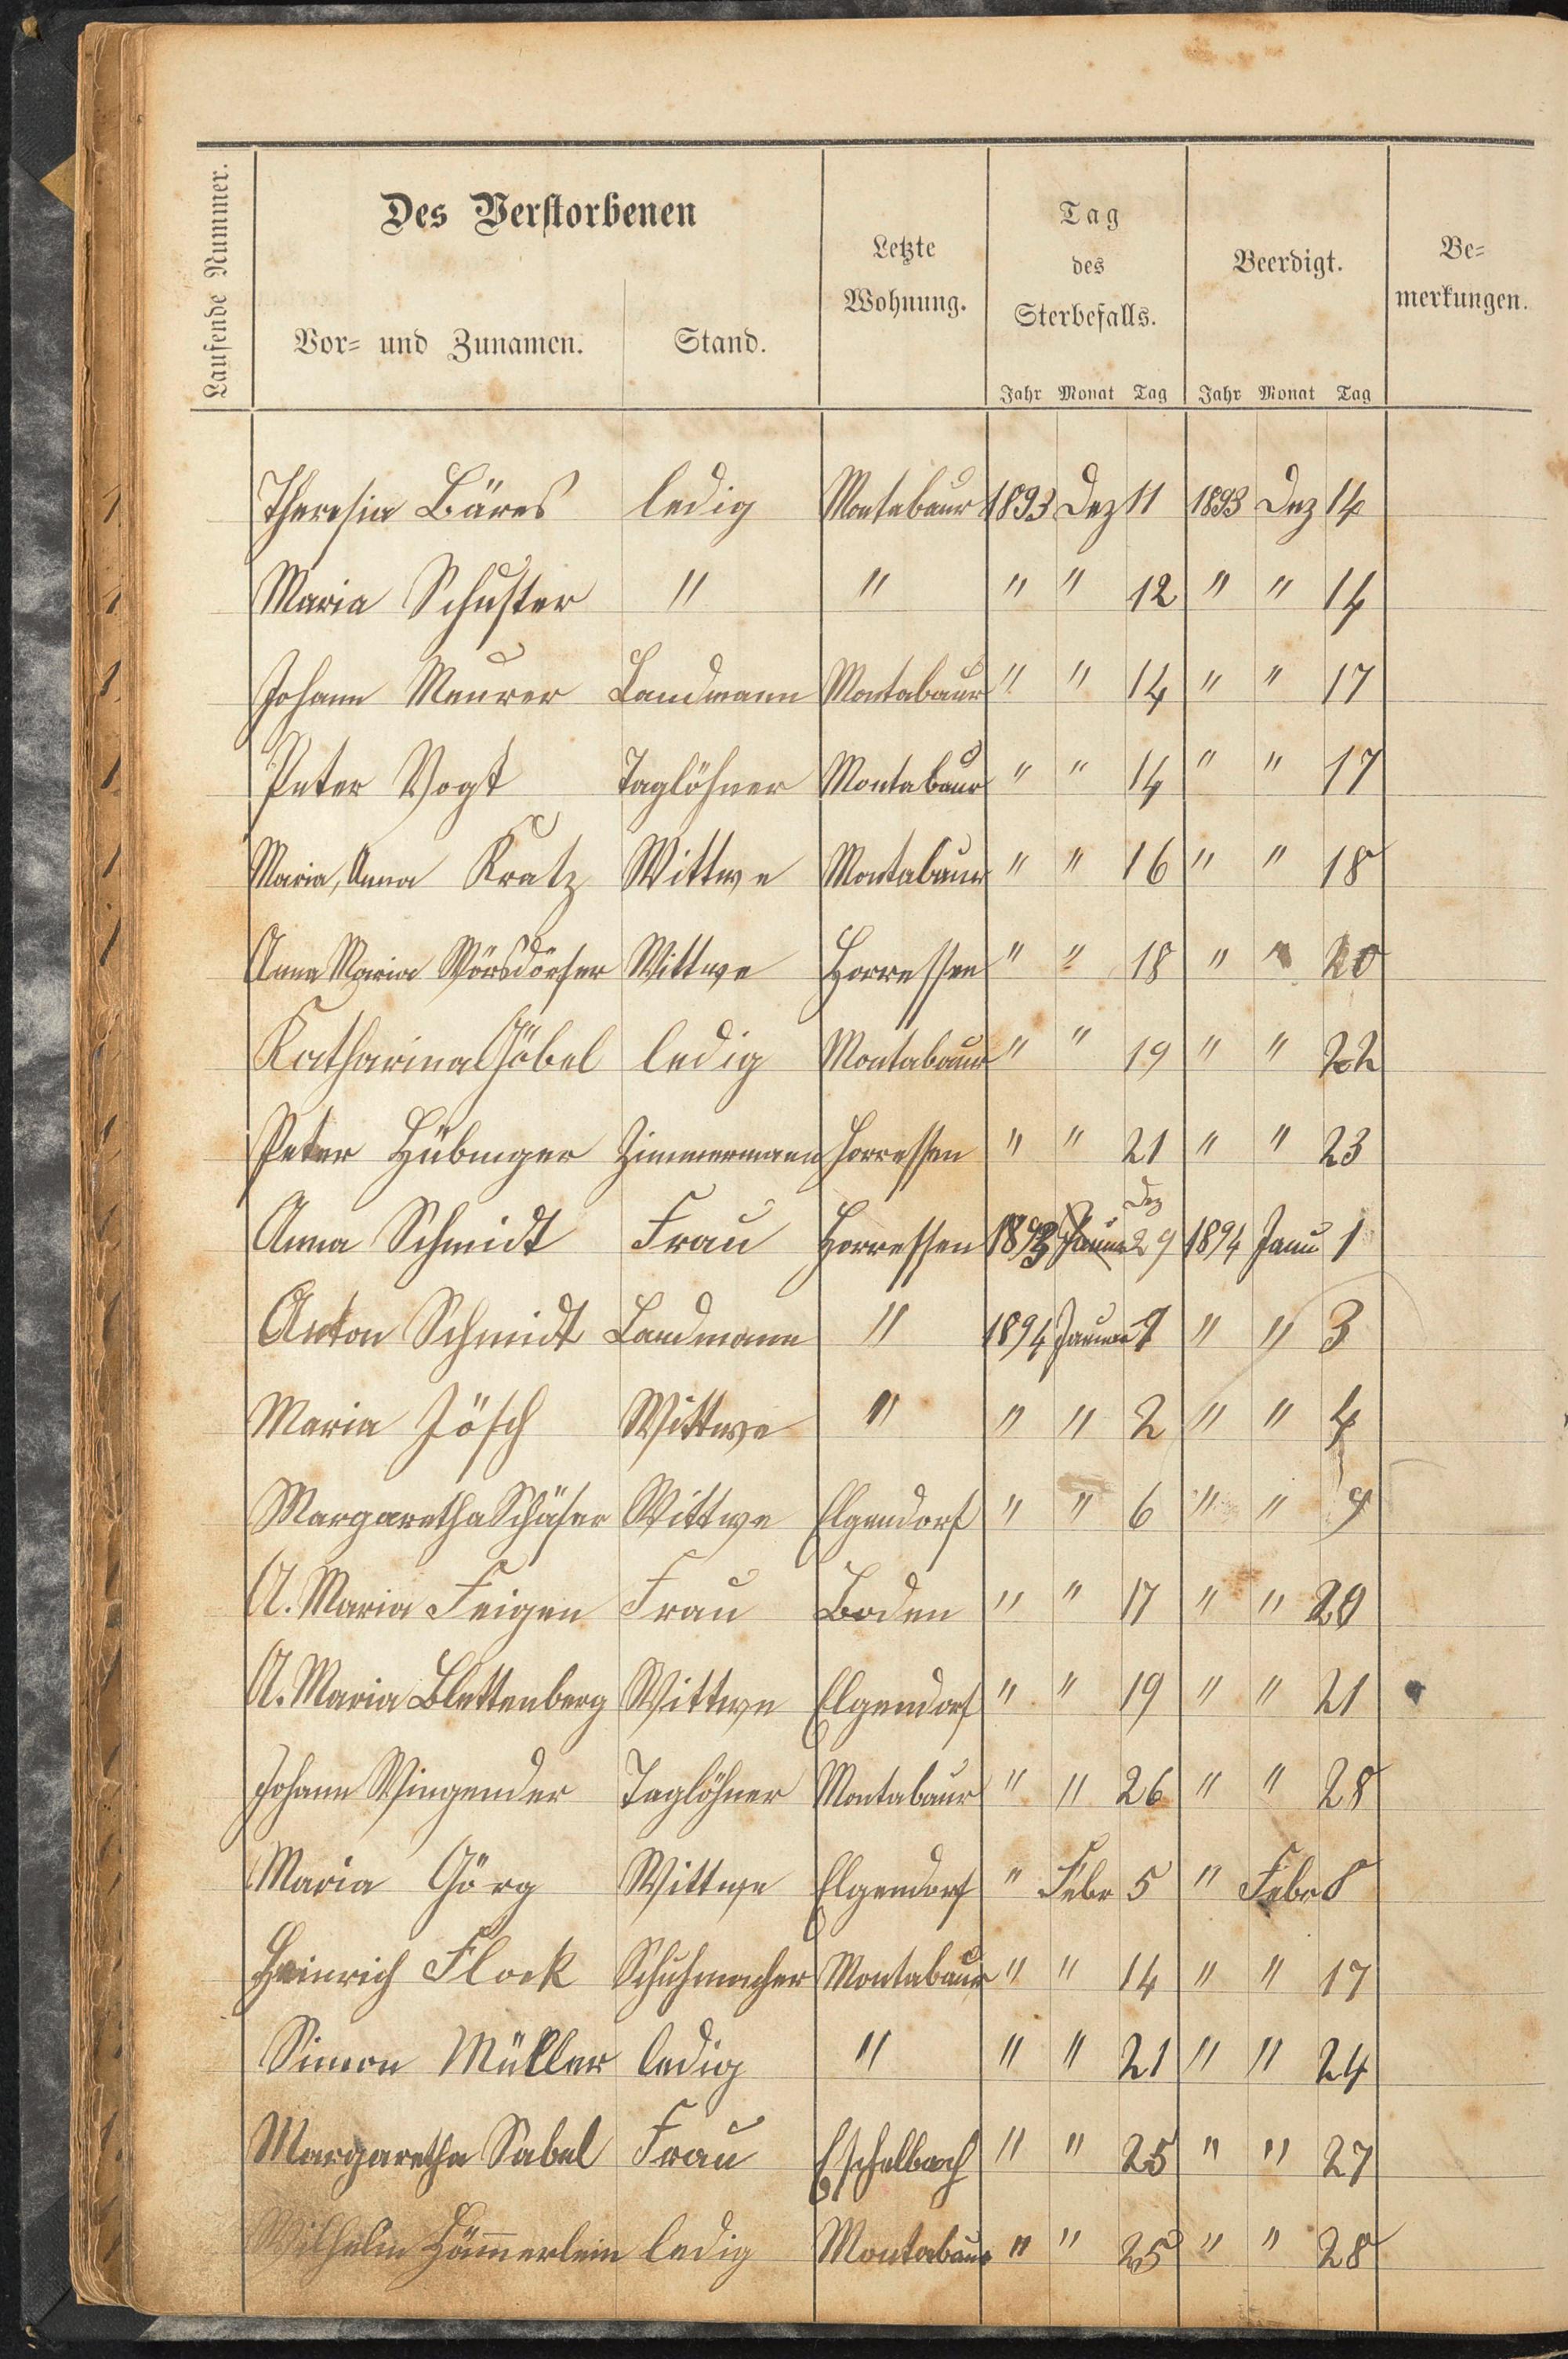 Laufende Nummer.
Des Verstorbenen
Vor- und Zunamen.
Stand.
Letzte
Wohnung.
Tag
des
Sterbefalls.
Jahr Monat Tag
Beerdigt.
Jahr Monat Tag
Be-
merkungen.
Theresia Bäres ledig Montabaur 1893 Dez 11 1893 Dez 14
Maria Schuster " " " " 12 " " 14
Johann Meurer Landmann Montabaur " " 14 " " 17
Peter Vogt Taglöhner Montabaur " " 14 " " 17
Maria, Anna Kratz Wittwe Montabaur " " 16 " " 18
Anna Maria Wörsdörfer Wittwe Horressen " " 18 " " 20
Katharina Göbel ledig Montabaur " " 19 " " 22
Peter Hübinger Zimmermann Horressen " " 21 " " 23
Dez
Anna Schmidt Frau Horressen 1893 29 1894 Janu 1
Anton Schmidt Landmann " 1894 Januar 1 " " 3
Maria Jösch Wittwe " " " 2 " " 4
Margaretha Schäfer Wittwe Elgendorf " " 6 " " 9
A. Maria Feigen Frau Boden " " 17 " " 20
A. Maria Blettenberg Wittwe Elgendorf " " 19 " " 21
Johann Wingender Taglöhner Montabaur " " 26 " " 28
Maria Görg Wittwe Elgendorf " Febr 5 " Febr 8
Heinrich Flock Schuhmacher Montabaur " " 14 " " 17
Simon Müller ledig " " " 21 " " 24
Margaretha Sabel Frau Eschelbach " " 25 " " 27
Wilhelm Hämmerlein ledig Montabaur " " 25 " " 28